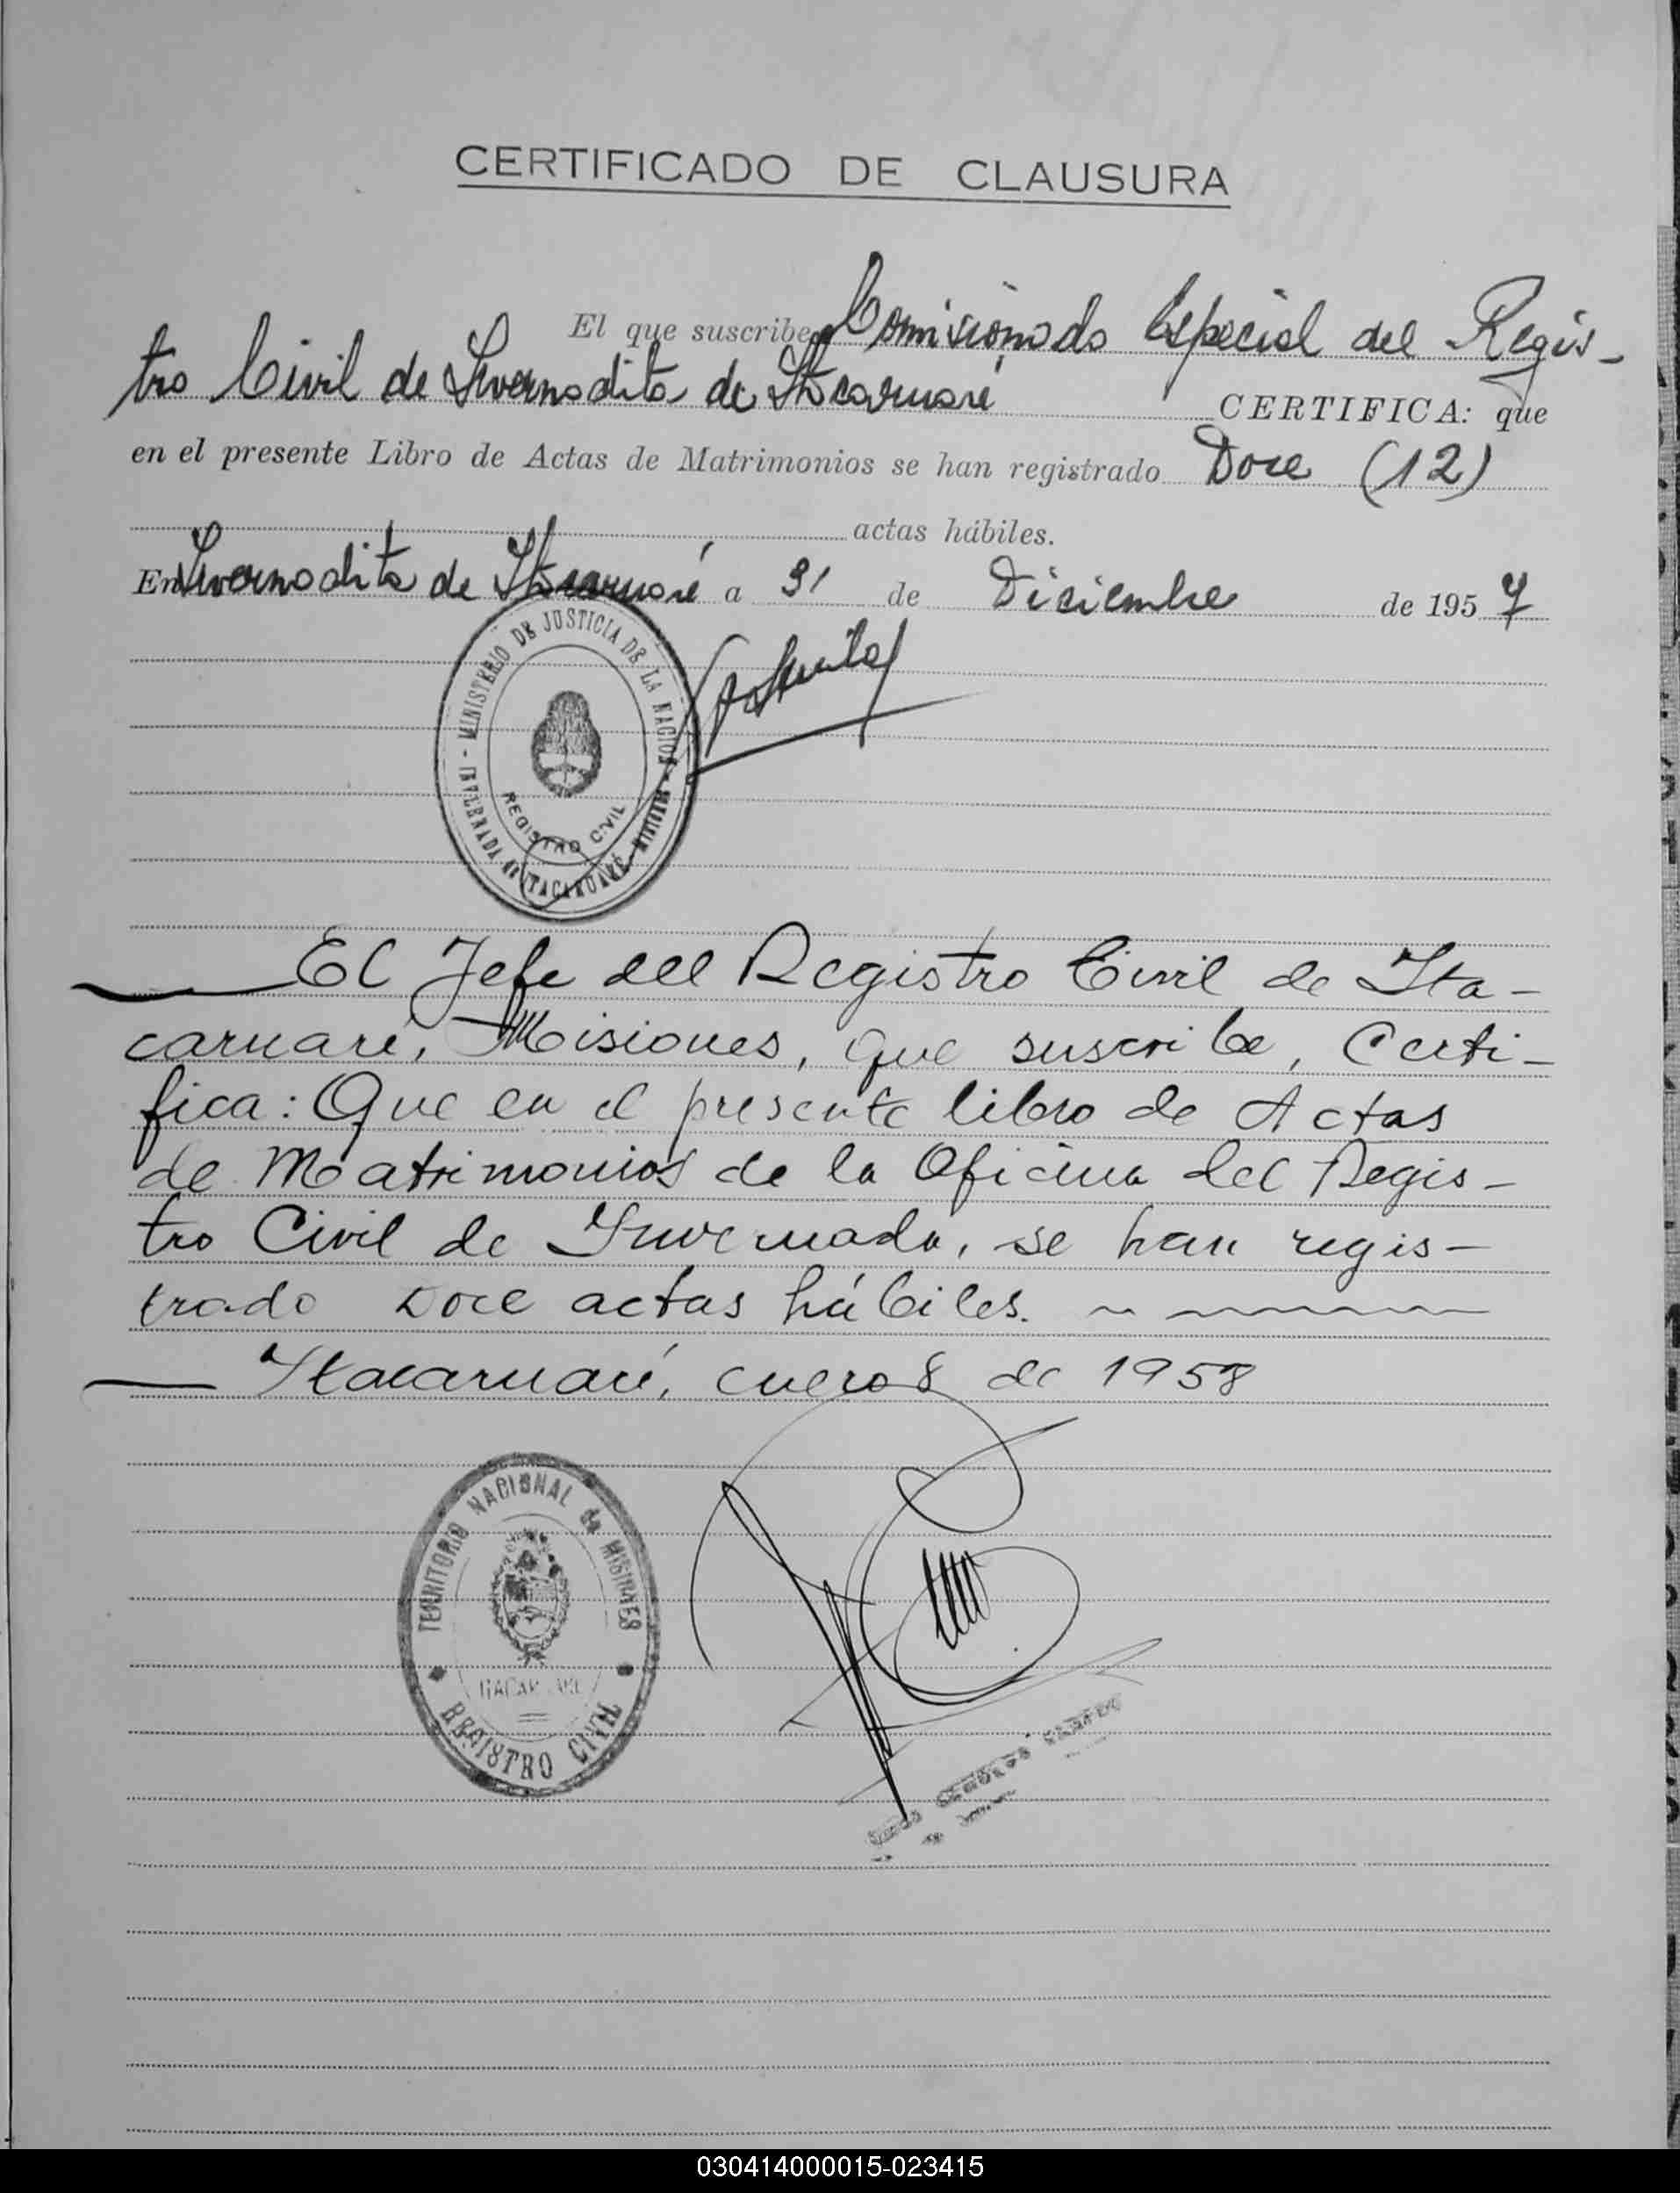 CERTIFICADO DE CLAUSURA
El que suscribe, Comisionado Especial del Regis-
tro Civil de Invernadita de Itacaruaré CERTIFICA: que
en el presente Libro de Actas de Matrimonios se han registrado Doce (12)
actas hábiles.
En Invernadita de Itacaruaré a 31 de Diciembre de 1957
MINISTERIO DE JUSTICIA DE LA NACION
REGISTRO CIVIL
INVERNADA DE ITACARUARÉ - MISIONES
El Jefe del Registro Civil de Ita-
caruaré, Misiones, que suscribe, Certi-
fica: Que en el presente libro de Actas
de Matrimonios de la Oficina del Regis-
tro Civil de Invernada, se han regis-
trado Doce actas hábiles.
Itacaruaré, enero 8 de 1958
TERRITORIO NACIONAL de MISIONES
ITACARUARE
REGISTRO CIVIL
030414000015-023415